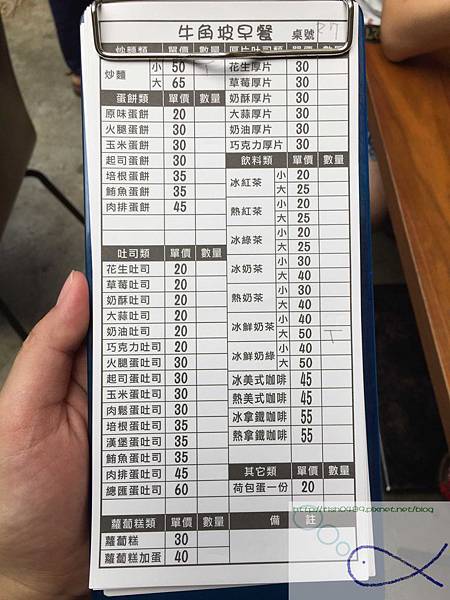 牛角坡早餐 桌號
炒麵類 單價 數量
炒麵 小 50
大 65
蛋餅類 單價 數量
原味蛋餅 20
火腿蛋餅 30
玉米蛋餅 30
起司蛋餅 30
培根蛋餅 35
鮪魚蛋餅 35
肉排蛋餅 45
吐司類 單價 數量
花生吐司 20
草莓吐司 20
奶酥吐司 20
大蒜吐司 20
奶油吐司 20
巧克力吐司 20
火腿蛋吐司 30
起司蛋吐司 30
玉米蛋吐司 30
肉鬆蛋吐司 30
培根蛋吐司 35
漢堡蛋吐司 35
鮪魚蛋吐司 35
肉排蛋吐司 45
總匯蛋吐司 60
蘿蔔糕類 單價 數量
蘿蔔糕 30
蘿蔔糕加蛋 40
厚片吐司類 單價 數量
花生厚片 30
草莓厚片 30
奶酥厚片 30
大蒜厚片 30
奶油厚片 30
巧克力厚片 30
飲料類 單價 數量
冰紅茶 小 20
大 25
熱紅茶 小 20
大 25
冰綠茶 小 20
大 25
冰奶茶 小 30
大 40
熱奶茶 小 30
大 40
冰鮮奶茶 小 40
大 50
冰鮮奶綠 小 40
大 50
冰美式咖啡 45
熱美式咖啡 45
冰拿鐵咖啡 55
熱拿鐵咖啡 55
其它類 單價 數量
荷包蛋一份 20
備 註